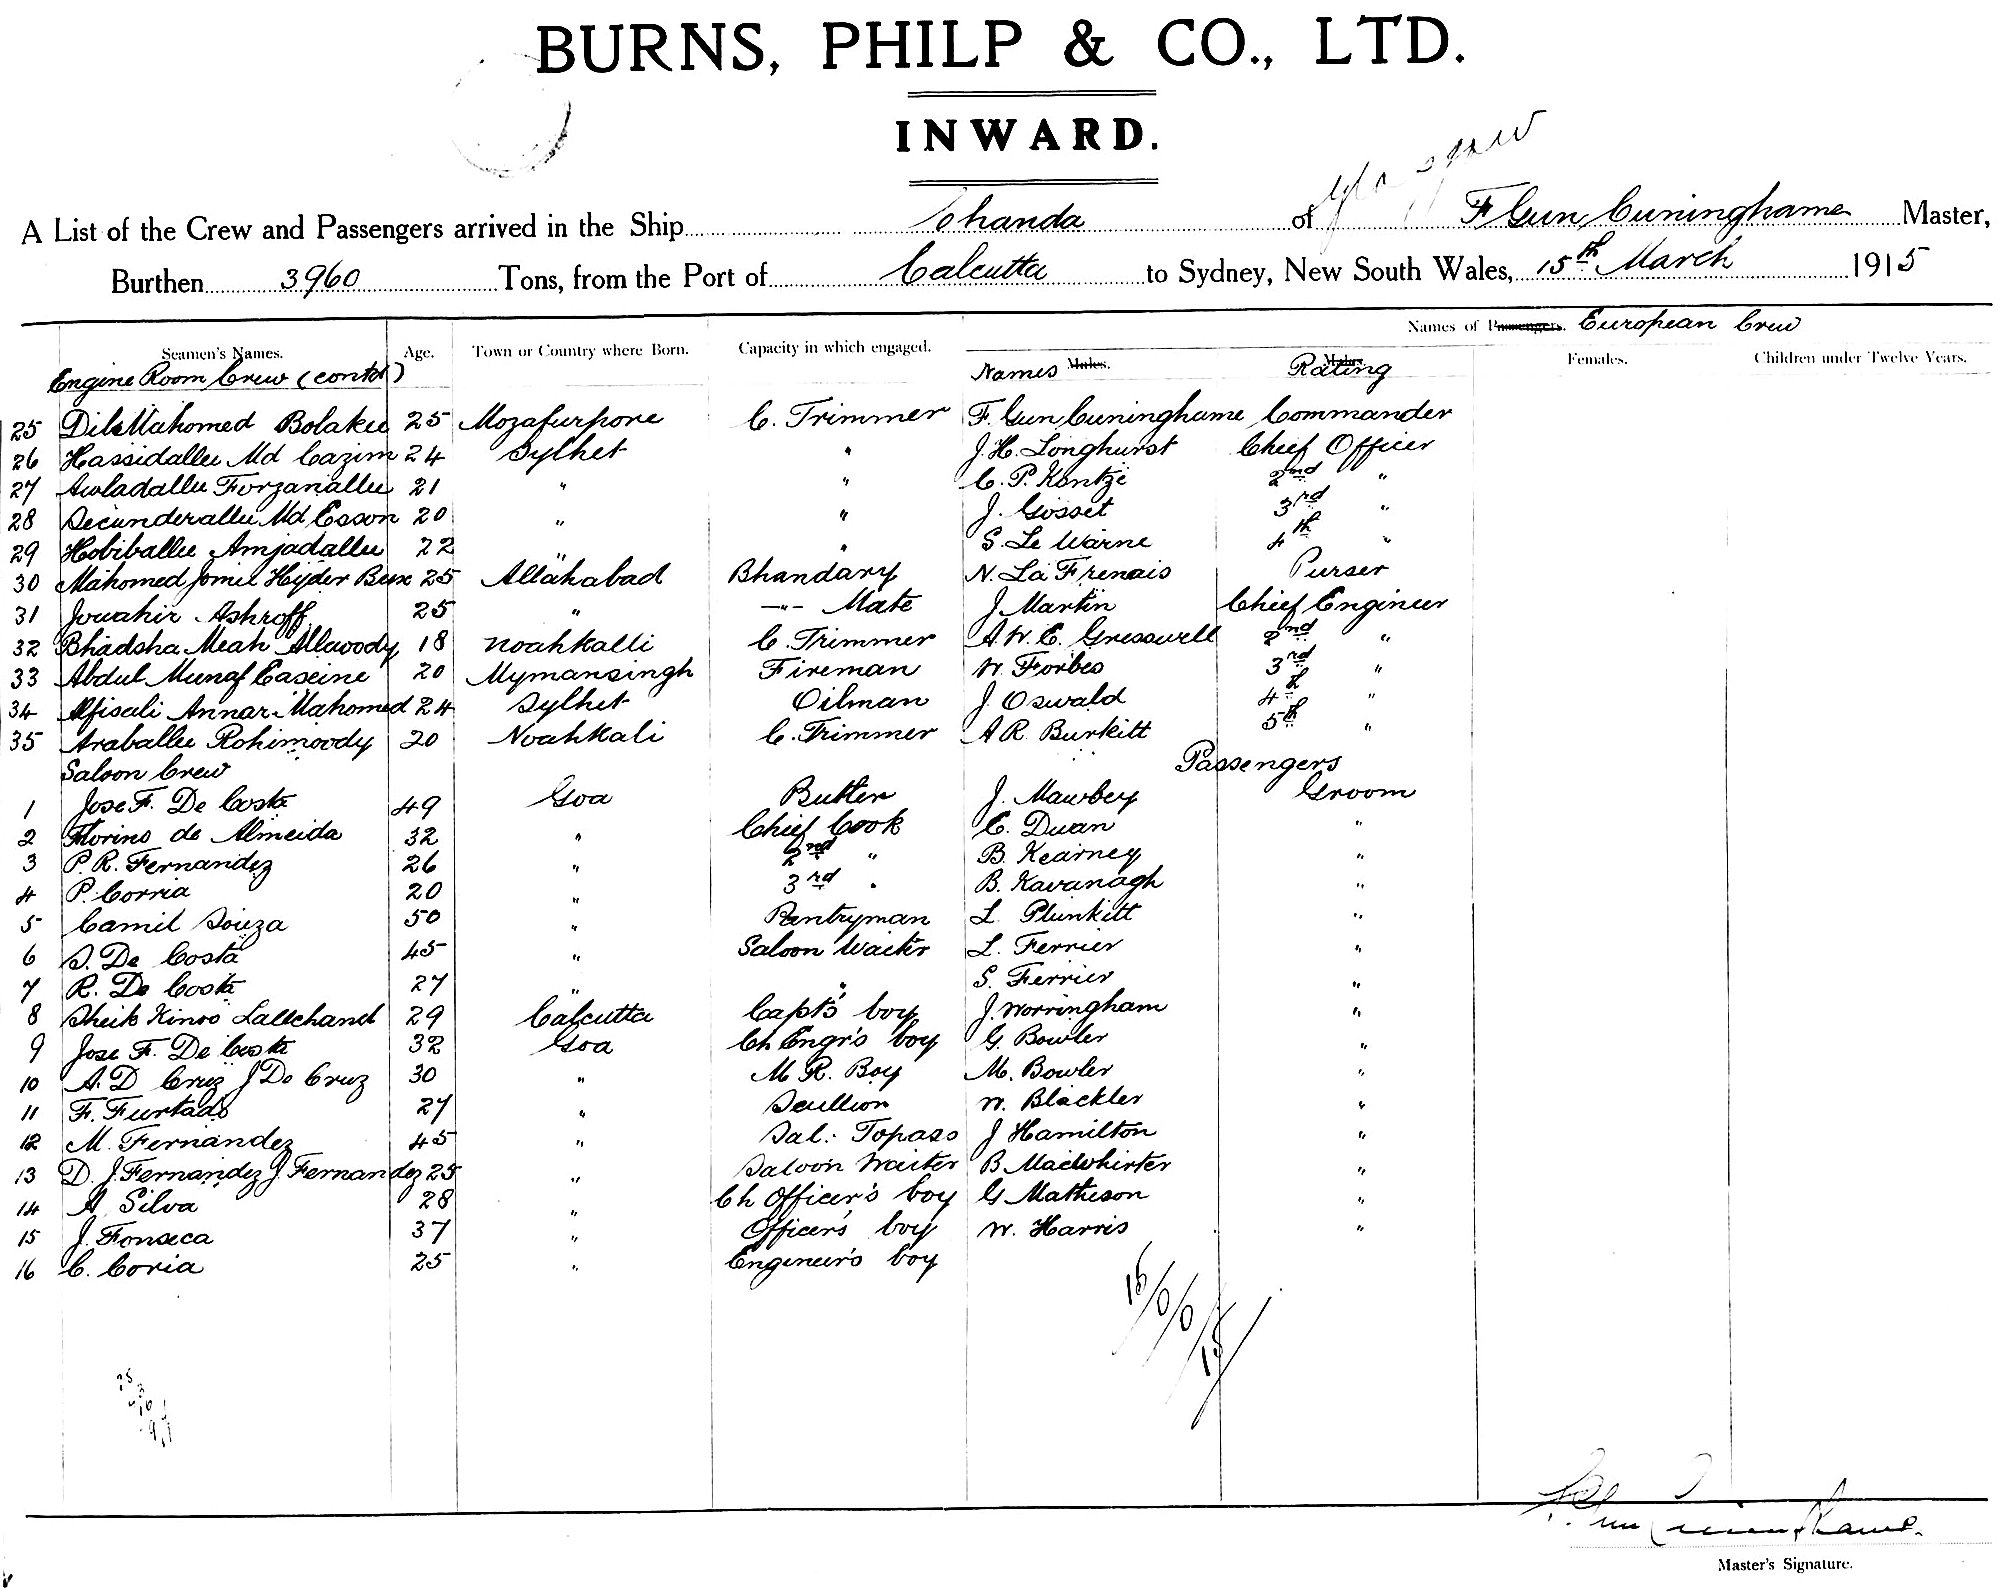 BURNS, PHILP & CO., LTD.
INWARD.
Glasgow
A List of the Crew and Passengers arrived in the Ship Chanda of F Gun Cuninghame Master,
Burthen 3960 Tons, from the Port of Calcutta to Sydney, New South Wales, 15th March 1915
Names of Passengers. European Crew
Seamen's Names. Age. Town or Country where Born. Capacity in which engaged. Names Males. Rating Males. Females. Children under Twelve Years.
Engine Room Crew (contd)
25 Dil Mahomed Bolakee 25 Mozafurpore C. Trimmer F. Gun Cuninghame Commander
26 Hassidallee Md Cazim 24 Sylhet " J. H. Longhurst Chief Officer
27 Awladallee Forzanallee 21 " " C. P. Kentze 2nd "
28 Secunderallee Md Esson 20 " " J. Gosset 3rd "
29 Hobiballee Amjadallee 22 " " S. Le Warne 4th "
30 Mahomed Jomil Hyder Bux 25 Allahabad Bhandary N. La Frenais Purser
31 Jouahir Ashroff 25 " -"- Mate J. Martin Chief Engineer
32 Bhadsha Meah Allawoody 18 Noahkalli C. Trimmer A. W. E. Gresswell 2nd "
33 Abdul Munaf Easeine 20 Mymansingh Fireman W. Forbes 3rd "
34 Afisali Annar Mahomed 24 Sylhet Oilman J. Oswald 4th "
35 Araballee Rohimoody 20 Noahkali C. Trimmer A R. Burkitt 5th "
Saloon Crew Passengers
1 Jose F. De Costa 49 Goa Butler J. Mawbey Groom
2 Florino de Almeida 32 " Chief Cook C. Duan "
3 P. R. Fernandez 26 " 2nd " B. Kearney "
4 P. Corria 20 " 3rd " B. Kavanagh "
5 Camil Souza 50 " Pantryman L. Plunkitt "
6 S. De Costa 45 " Saloon Waiter L. Ferrier "
7 R. De Costa 27 " " S. Ferrier "
8 Sheik Kinoo Lallchand 29 Calcutta Capt's boy J. Worringham "
9 Jose F. De Costa 32 Goa Ch Engr's boy G. Bowler "
10 A. D Cruz J De Cruz 30 " M. R. Boy M. Bowler "
11 F. Furtado 27 " Scullion W. Blackler "
12 M. Fernandez 45 " Sal: Topass J Hamilton "
13 D. J. Fernandez J. Fernandez 25 " Saloon Waiter B MacWhirter "
14 A Silva 28 " Ch Officer's boy G Matheson "
15 J. Fonseca 37 " Officer's boy W. Harris "
16 C. Coria 25 " Engineer's boy
15/0/0/15
F. Gun Cuninghame.
Master's Signature.